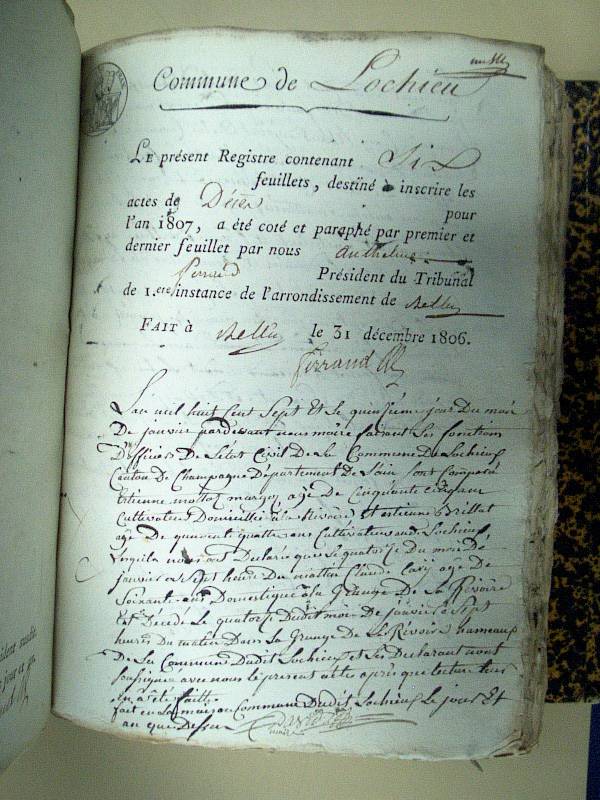 Commune de Lochieu
LE présent Registre contenant Six
feuillets, destiné à inscrire les
actes de Décès pour
l'an 1807, a été coté et paraphé par premier et
dernier feuillet par nous Anthelme
Ferrand Président du Tribunal
de 1.ere instance de l'arrondissement de Belley
FAIT à Belley le 31 décembre 1806.
ferrand
L'an mil huit Cent Sept Et le quinzieme jour Du mois
De janvier pardevant nous maire faisant Les fonctions
D'officier De L'état Civil De La Commune De Lochieu
Canton De Champagne Département De Lain sont Comparu
Etienne age De Cinquante cinq ans
Cultivateur Domicillié à la Rivoire Et etienne Brillat
age De quarente quattre ans Cultivateur audit Lochieu
Lesquels nous ont Declaré que Le quatorze Du mois De
janvier a Sept heure Du mattin Claude age De
Soixante ans Domestique a la Grange De La Rivoire
est Décédé Le quatorze Dudit mois De janvier a Sept
heures Du matin Dans La Grange De La Rivoire hameaux
De La Commune Dudit Lochieu et Les Declarant avont
soussignés avec nous Le present acte après que lecture leur
en a été faitte
fait en La maison Commune Dudit Lochieu Le jour Et
an que Dessus
maire